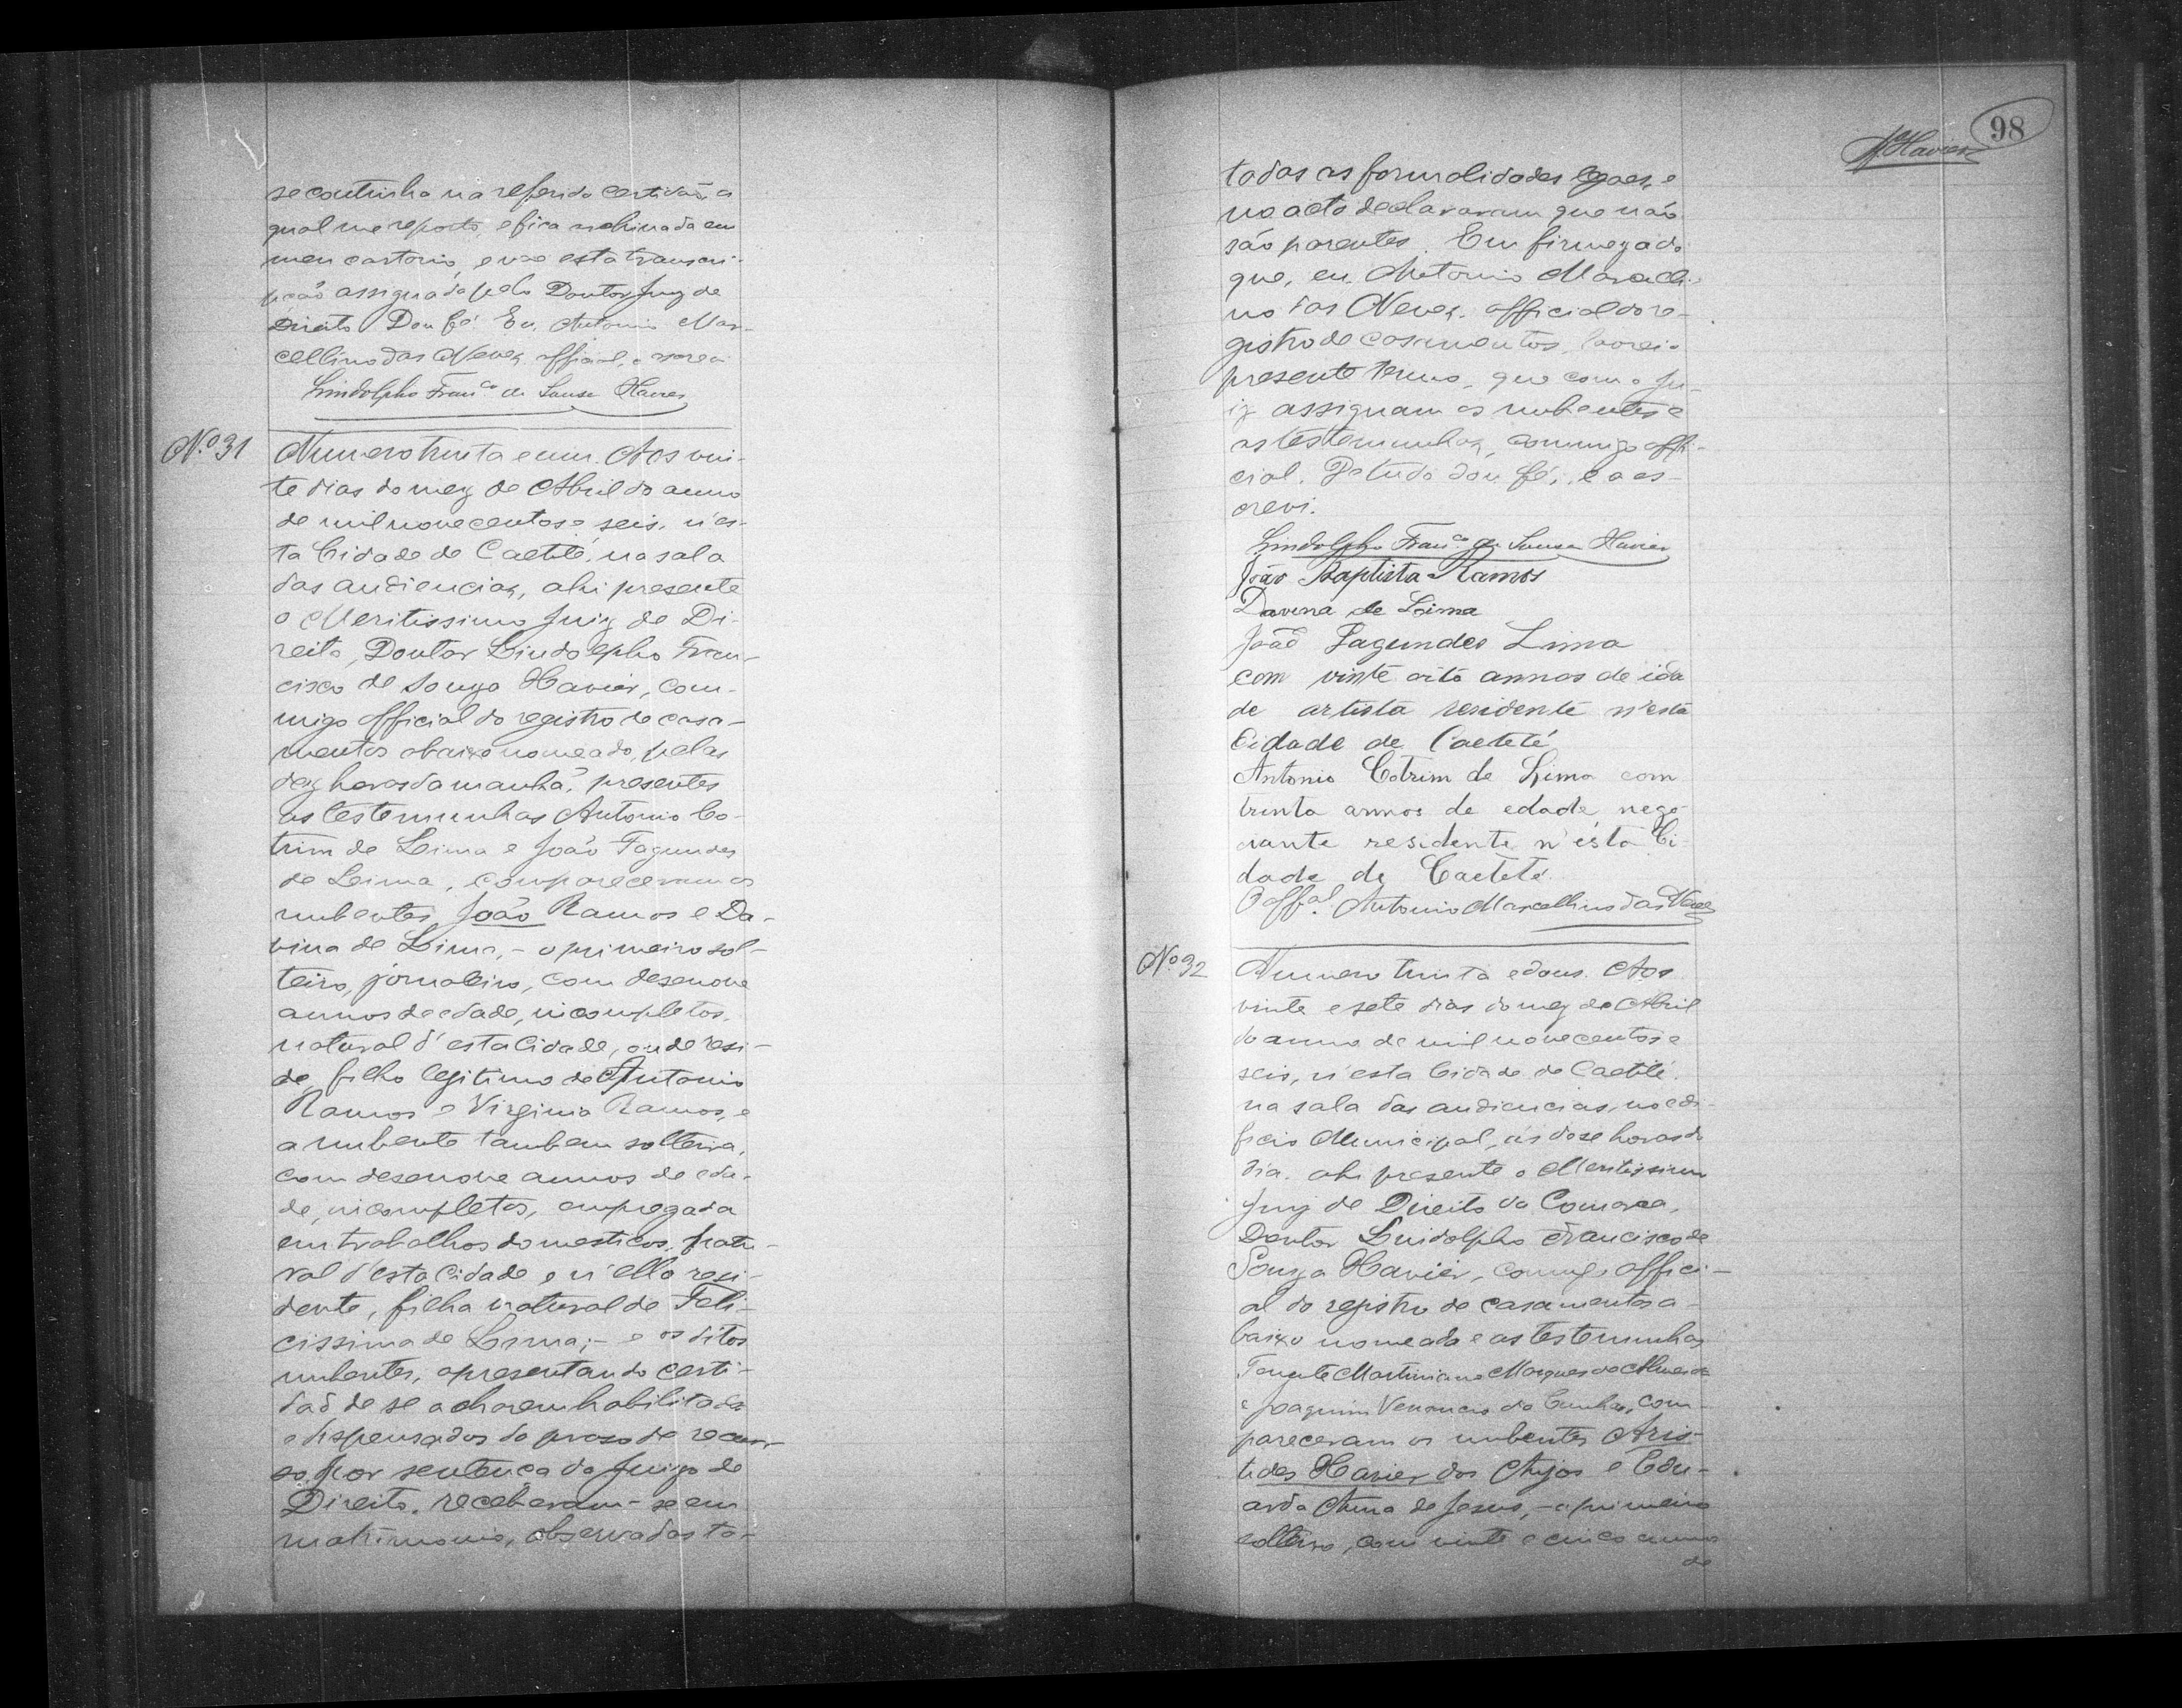 se continha na referida certidão, a
qual me reporto, e fica archivada em
meu cartorio, e vae esta transcri-
pção assignada pelo Doutor Juiz de
Direito. Dou fé. Eu, Antonio Mar-
cellino das Neves, official, o escrevi
Lindolpho Fran.co de Sousa Havier
Nº 31
Numero trinta e um. Aos vin-
te dias do mez de Abril do anno
de mil nove centos e seis, n'es-
ta Cidade de Caetité, na sala
das audiencias, ahi presente
o Meritissimo Juiz de Di-
reito, Doutor Lindolpho Fran-
cisco de Souza Havier, com-
migo official do registro de casa-
mentos abaixo nomeado, pelas
dez horas da manhã, presentes
as testemunhas Antonio Co-
trim de Lima e João Fagundes
de Lima, compareceram os
nubentes, João Ramos e Da-
vina de Lima, - o primeiro sol-
teiro, jornaleiro, com desenove
annos de edade, incompletos,
natural d'esta Cidade, onde resi-
de, filho legitimo de Antonio
Ramos e Virginia Ramos, e
a nubente tambem solteira,
com desenove annos de eda-
de, incompletos, empregada
em trabalhos domesticos, natu-
ral d'esta Cidade e n'ella resi-
dente, filha natural de Feli-
cissima de Lima; - e os ditos
nubentes, apresentando certi-
dão de se acharem habilitados
e dispensados do praso de recur-
so, por sentença do Juizo de
Direito, receberam-se em
matrimonio, observadas to-
98
Havier
todas as formalidades legaes, e
no acto declararam que não
são parentes. Em firmeza do
que, eu, Antonio Marcelli-
no das Neves, official do re-
gistro de casamentos, lavrei o
presente termo, que com o Ju-
iz assignam os nubentes e
as testemunhas, commigo offi-
cial. De tudo dou fé, e o es-
crevi.
Lindolpho Fran.co de Sousa Havier
João Baptista Ramos
Davina de Lima
João Fagundes Lima
com vinte oito annos de ida
de artista residente n'esta
Cidade de Caeteté
Antonio Cotrim de Lima com
trinta annos de edade, nego-
ciante residente n'esta Ci-
dade de Caeteté.
O offal. Antonio Marcellino das Neves
Nº 32
Numero trinta e dous. Aos
vinte e sete dias do mez de Abril
do anno de mil nove centos e
seis, n'esta Cidade de Caetité,
na sala das audiencias, no edi-
ficio Municipal, ás dose horas do
dia, ahi presente o Meritissimo
Juiz de Direito da Comarca,
Doutor Lindolpho Francisco de
Souza Havier, commigo offici-
al do registro de casamentos a-
baixo nomeado e as testemunhas
Tenente Martiniano Marques de Almeida
e Joaquim Venancio da Cunha, com-
pareceram os nubentes Aris-
tides Havier dos Anjos e Edu-
arda Anna de Jesus, - o primeiro
solteiro, com vinte e cinco annos
de